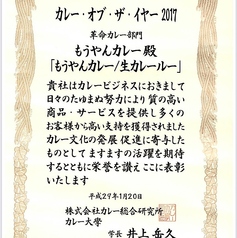 カレー・オブ・ザ・イヤー 2017
革命カレー部門
もうやんカレー 殿
「もうやんカレー/生カレールー」
貴社はカレービジネスにおきまして
日々のたゆまぬ努力により質の高い
商品・サービスを提供し多くの
お客様から高い支持を獲得されました
カレー文化の発展 促進に寄与した
ものとしてますますの活躍を期待
するとともに栄誉を讃え ここに表彰
いたします
平成29年1月20日
株式会社カレー総合研究所
カレー大学
学長 井上 岳久